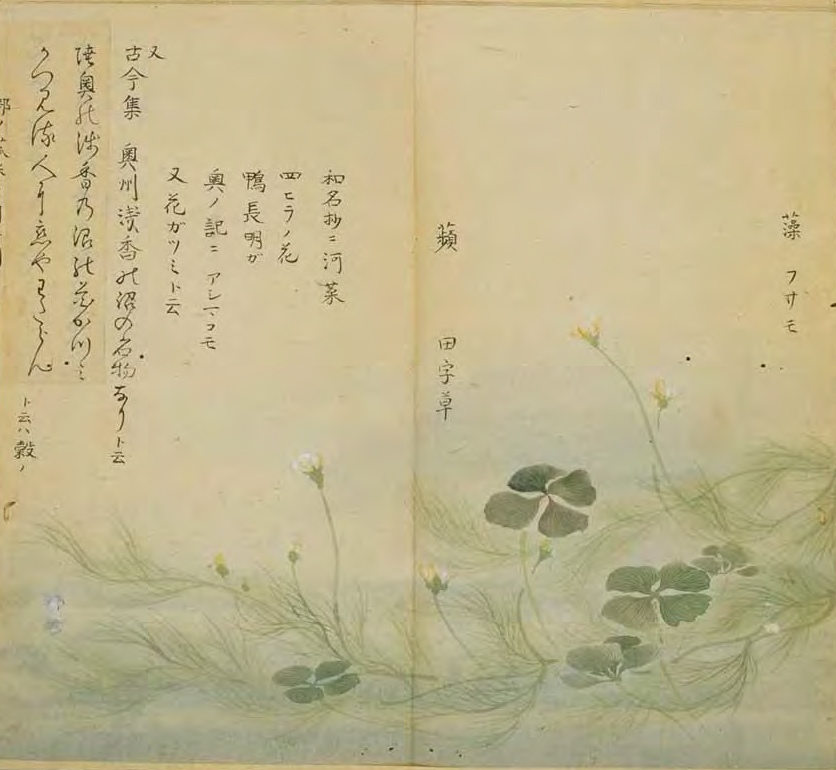 藻 フサモ
蘋 田字草
和名抄ニ河菜
四ヒラノ花
鴨長明ガ
奥ノ記ニ アシマコモ
又花ガツミト云
又
古今集 奥州浅香の沼の名物なりト云
陸奥の浅香乃沼の花かつミ
かつみる人に恋やわたらん
ト云ハ穀ノ